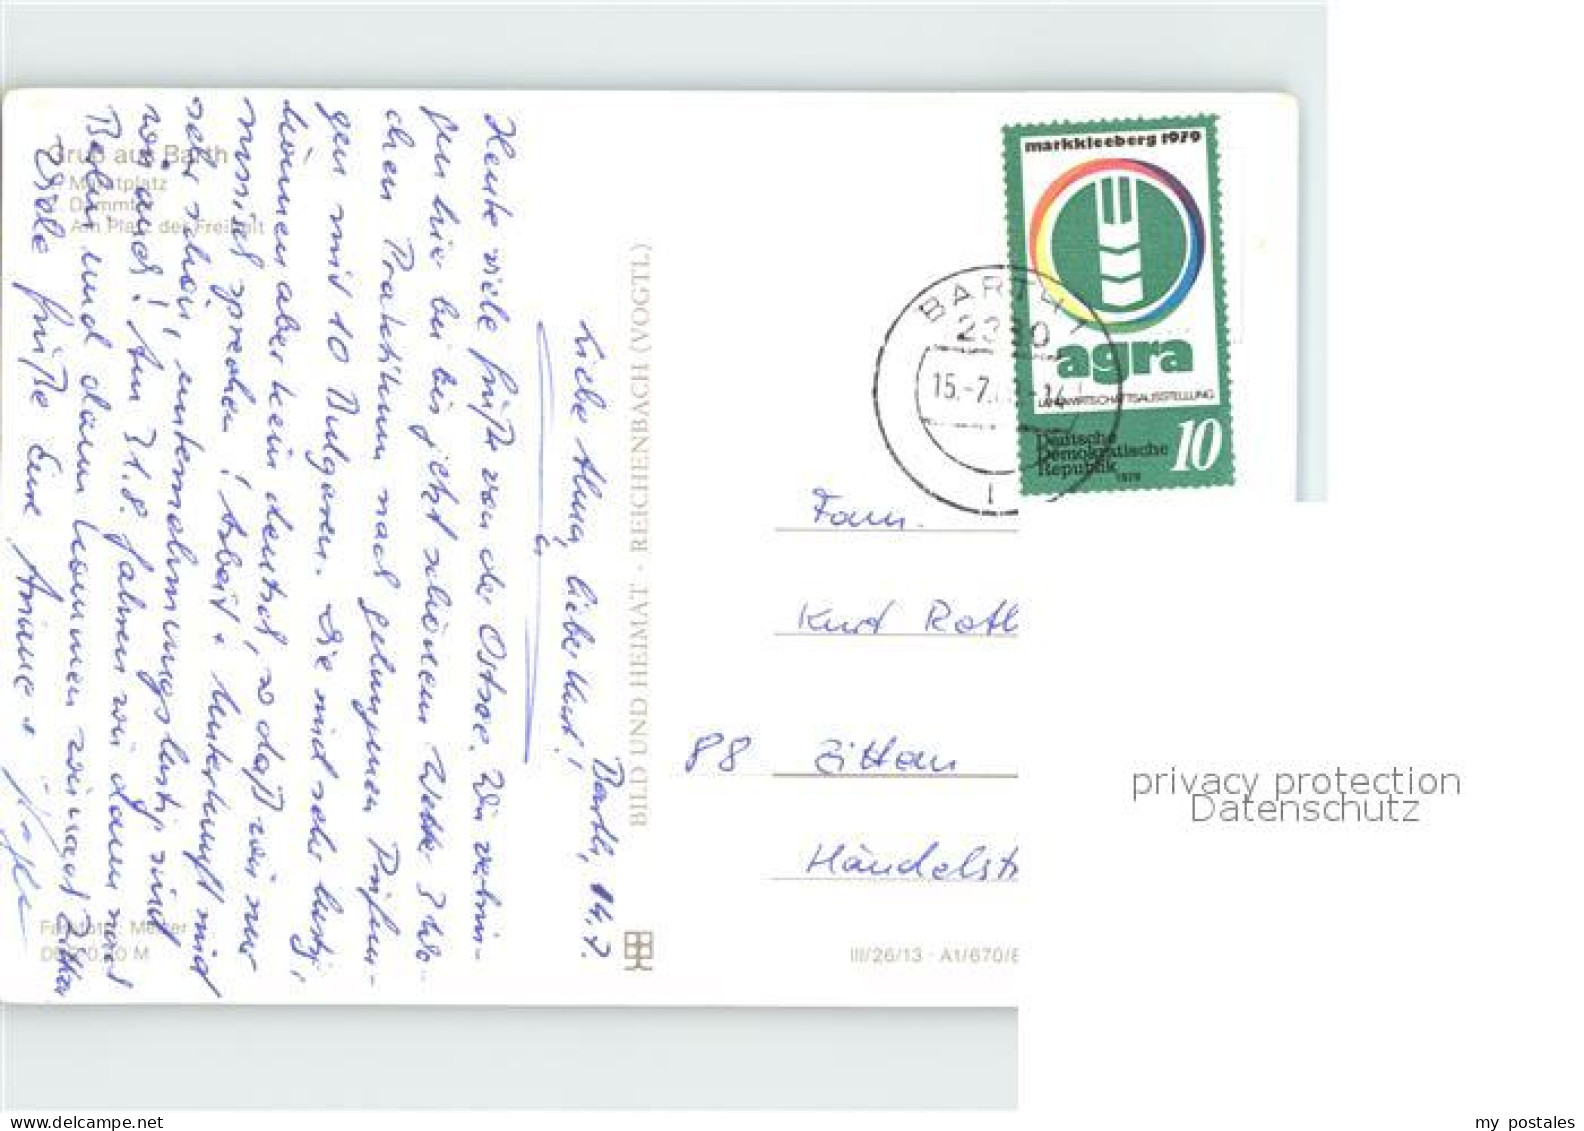 Gruß aus Barth
Marktplatz
Dammtor
Am Platz der Freiheit
Barth, 14.7.
Liebe Alma, lieber Kurt!
Heute viele Grüße von der Ostsee. Wir verbrin-
gen hier bei bis jetzt schönem Wetter 3 Wo-
chen Praktikum nach gelungenen Prüfun-
gen mit 10 Bulgaren. Sie sind sehr lustig,
können aber kein deutsch, so daß wir nur
russisch sprechen! Arbeit + Unterkunft sind
sehr schön, unternehmungslustig sind
wir auch! Am 31.8. fahren wir dann nach
Berlin und dann kommen wir nach Zittau
Viele Grüße Eure Annne +
Farbfoto: Meißer
BILD UND HEIMAT · REICHENBACH (VOGTL)
markkleeberg 1979
agra
LANDWIRTSCHAFTSAUSSTELLUNG
Deutsche
Demokratische
Republik
1979
10
BARTH 1
15.-7.
-14
Fam.
Kurt Roth
88 Zittau
Händelstr
III/26/13 · A1/670/
privacy protection
Datenschutz
my postales